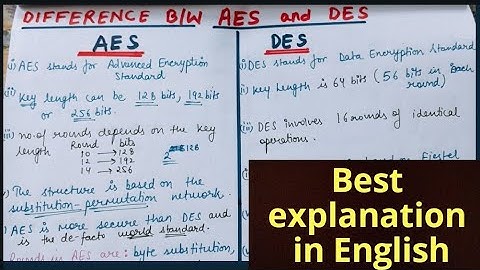 DIFFERENCE B/W AES and DES
AES
i) AES stands for Advanced Encryption
Standard
ii) Key length can be 128 bits, 192 bits
or 256 bits.
iii) no. of rounds depends on the key
length Round bits
10 → 128
12 → 192
14 → 256
The structure is based on the
substitution-permutation network.
AES is more secure than DES and
is the de-facto world standard.
Rounds in AES are: byte substitution,
DES
i) DES stands for Data Encryption Standard
ii) Key Length is 64 bits (56 bits in each
round)
iii) DES involves 16 rounds of identical
operations.
Feistel
Best
explanation
in English